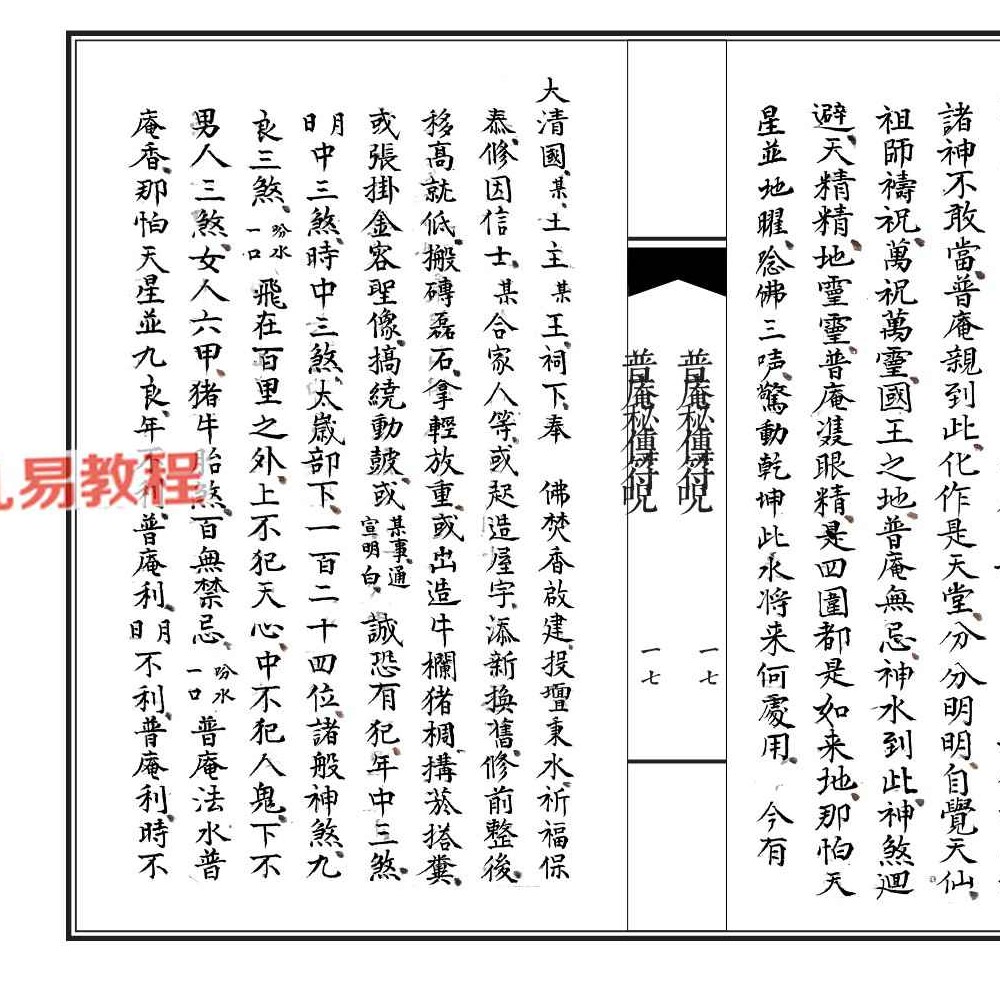 諸神不敢當普庵親到此化作是天堂分分明明自覺天仙
祖師禱祝萬祝萬靈國王之地普庵無忌神水到此神煞迴
避天精精地靈靈普庵雙眼精是四圍都是如来地那怕天
星並地曜唸佛三声驚動乾坤此水将来何處用 今有
普庵秘傳符呪
一七
普庵秘傳符呪
一七
大清國某土主某王祠下奉 佛焚香啟建投壇秉水祈福保
泰修因信士某合家人等或起造屋宇添新換舊修前整後
移高就低搬磚磊石拿輕放重或出造牛欄猪椆搆菸搭糞
或張掛金容聖像搞繞動皷或某事通宣明白誠恐有犯年中三煞
月日中三煞時中三煞太歲部下一百二十四位諸般神煞九
良三煞吩水一口飛在百里之外上不犯天心中不犯人鬼下不
男人三煞女人六甲猪牛胎煞百無禁忌吩水一口普庵法水普
庵香那怕天星並九良年不利普庵利月日不利普庵利時不
九易教程